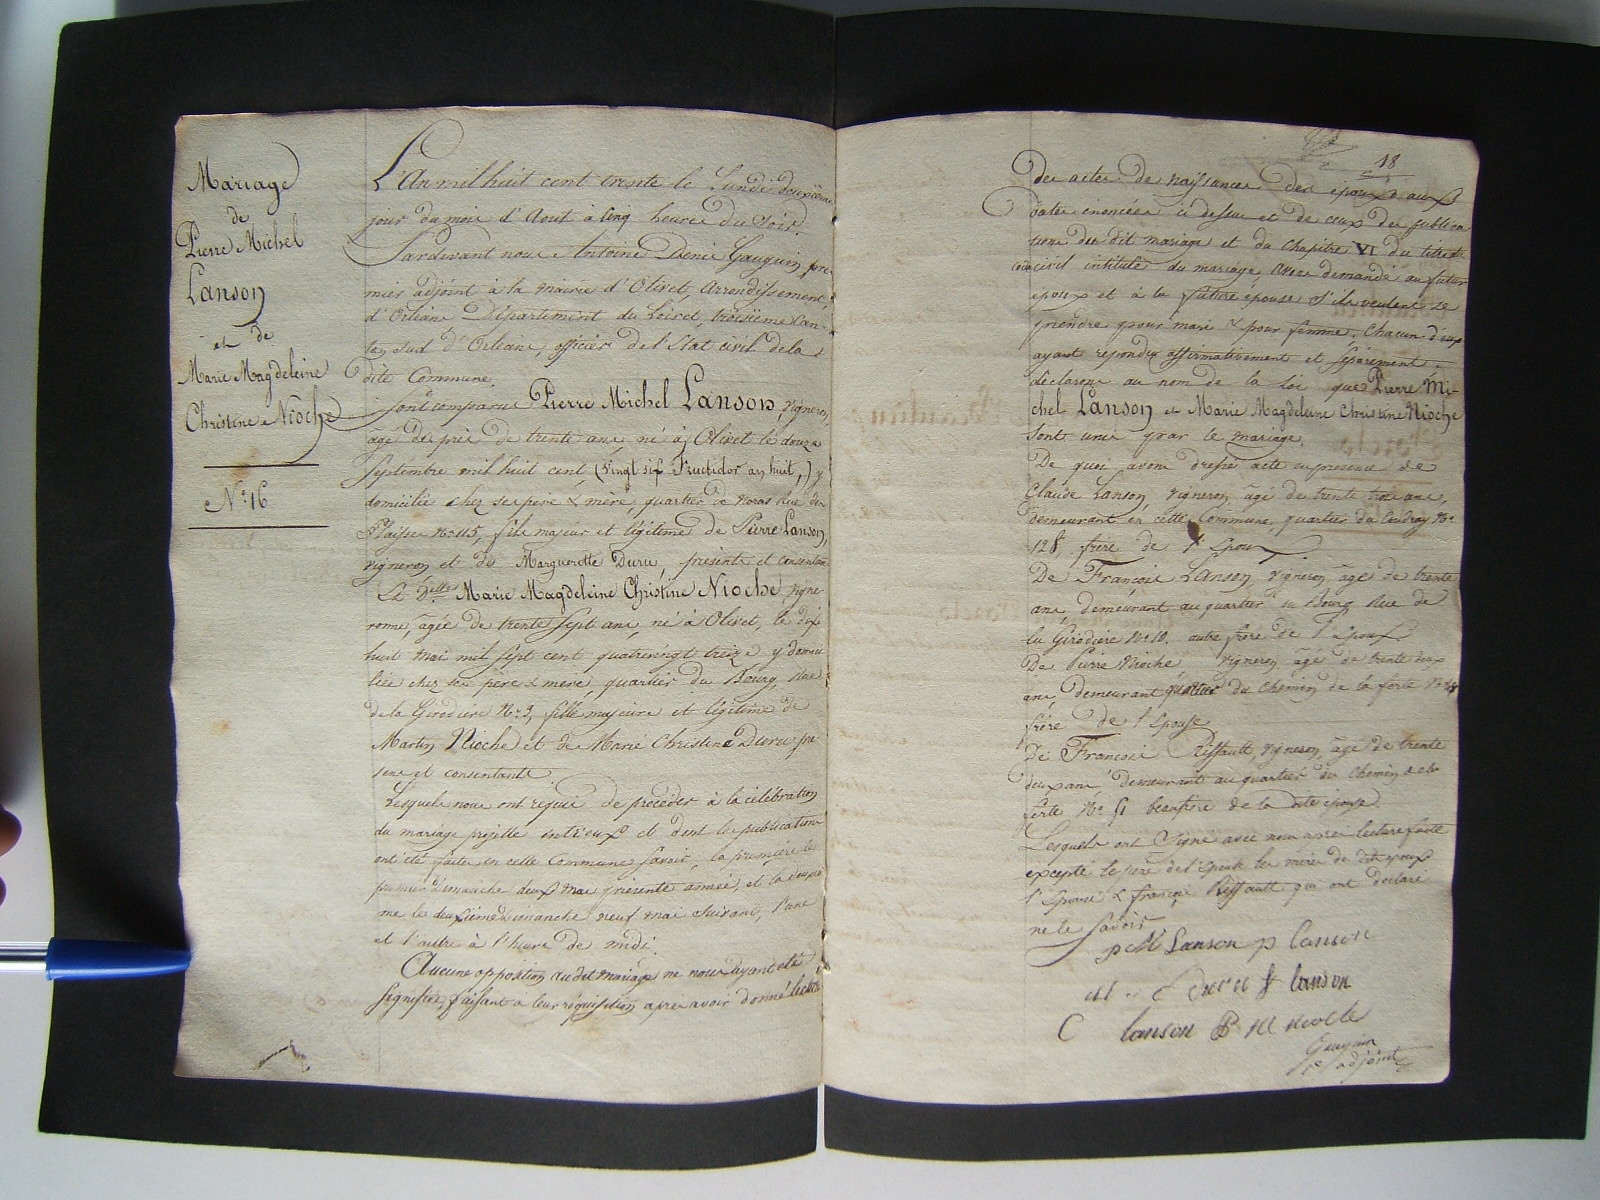 Mariage
de
Pierre Michel
Lanson
et de
Marie Magdeleine
Christine Nioche
N.° 16
L'An mil huit cent trente le Lundi deuxième
jour du mois d'Aout à Cinq heures du Soir.
Pardevant nous Antoine Denis Gauguin pre-
mier adjoint à la mairie d'Olivet, Arrondissement
d'Orléans Département du Loiret, troisième Can-
ton Sud d'Orléans, officier de l'Etat civil de la
dite Commune.
Sont comparus Pierre Michel Lanson, vigneron,
âgé de près de trente ans, né à Olivet le douze
Septembre mil huit cent (vingt six Fructidor an huit,) y
domicilié chez ses père & mère, quartier de Noras Rue de
Plaisse N.° 115, fils majeur et légitime de Pierre Lanson,
vigneron et de Margueritte Duru, présents et consentans
Et D.elle Marie Magdeleine Christine Nioche vigne
ronne, âgée de trente Sept ans, né à Olivet, le dix
huit Mai mil Sept cent quatrevingt treize y domi
liée chez ses père & mère, quartier du Bourg, Rue
de la Girodière N.° 3, fille majeure et légitime de
Martin Nioche et de Marie Christine Duru pré
sens et consentants
Lesquels nous ont requis de procéder à la célébration
du mariage projetté entr'eux et dont les publications
ont été faites en cette Commune Savoir, la première le
premier dimanche deux Mai présente année, et la deuxiè
me le deuxième dimanche neuf mai suivant, l'une
et l'autre à l'heure de midi.
Aucune opposition au dit mariage ne nous ayant été
signifiée, faisant a leur réquisition, après avoir donné lecture
18
des actes de naissances des époux aux
dates énoncées ci dessus et de ceux des publica
tions des dit mariage et du Chapitre VI du titre du
code civil intitulé du mariage, avons demandé au futur
époux et à la future épouse S'ils veulent se
prendre pour mari & pour femme; Chacun d'eux
ayant répondu affirmativement et séparément
déclarons au nom de la Loi que Pierre Mi-
chel Lanson et Marie Magdeleine Christine Nioche
sont unis par le mariage.
De quoi avons dressé acte en présence de
Claude Lanson vigneron âgé de trente trois ans,
demeurant en cette Commune, quartier du Coudray N.°
128 frère de l'Epoux
De François Lanson vigneron âgé de trente
ans, demeurant au quartier du Bourg Rue de
la Girodière N.° 10. autre frère de l'époux
De Pierre Nioche vigneron âgé de trente deux
ans, demeurant quartier du Chemin de la ferte N.° 48
frère de l'Epouse
De François Riffault, vigneron, âgé de trente
deux ans, demeurant au quartier du Chemin de la
ferte N.° 51 beaufrère de la dite épouse.
Lesquels ont Signé avec nous après lecture faite
excepté le père de l'épouse les mères des dits époux
l'épouse & françois Riffault qui ont déclaré
ne le Savoir
p M Lanson p Lanson
f lanson
C lanson P M nioche
Gauguin
adjoint